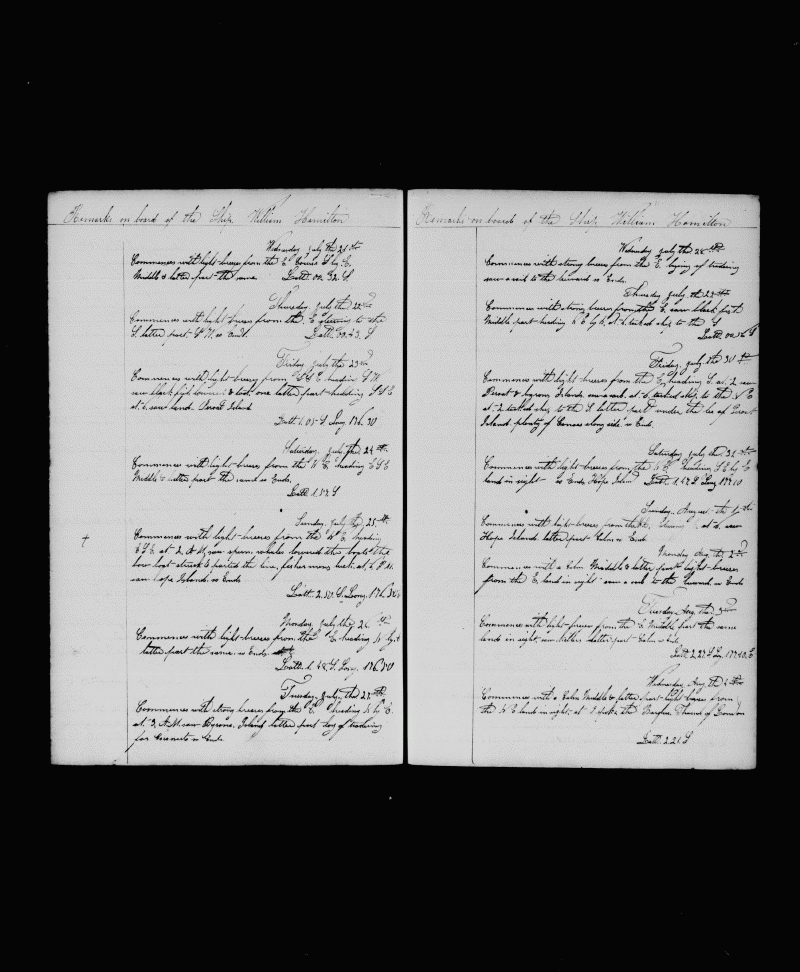 Remarks on board of the Ship William Hamilton
Wednesday July the 21st
Commences with light breeses from the E Course S by E.
Middle & latter part the same Latt. 00. 32. S.
Thursday, July the 22nd
Commences with light breeses from the E to the
S. latter part S W. so Ends. Latt. 00.43. S
Friday July the 23rd
Commences with light breesy from SSE heading S W.
saw black fish lowered & took one latter part heading S S E
at. 6. saw land. Island
Latt 1.05 S Long 176.30
Saturday, July the 24th
Commences with light breeses from the N E heading E S E
Middle & latter part the same so Ends.
Latt 1.57 S
Sunday, July the 25th
Commences with light breeses from the N E. heading
E S E at 2. A.M. saw sperm whales lowered the boats the
bow boat struck & parted the line, fastened more at, 4 P.M.
saw hope Island. so Ends
Latt. 2.50. S. Long. 176.
Monday, July the 26th
Commences with light breeses from the E heading N by
latter part the same. so Ends.
Latt. 1.48. S. Long. 176.50
Tuesday, July, the 27th
Commences with strong breeses from the E heading N by E.
at. 9. A.M. saw Byrons. Island latter part lay of tradeing
for Coconuts so Ends
Remarks on board of the Ship William Hamilton
Wednesday July the 28th
Commences with strong breeses from the E. laying of tradeing
saw a sail to the leeward so Ends.
Thursday July the 29th
Commences with strong breeses from the E. saw black fish
Middle part heading N E by N. at. 4 tacked ship to the S
Latt. 00.
Friday, July the 30th
Commences with light breeses from the E heading S. at. 2 saw
& byrons Islands saw a sail. at. 6. tacked ship to the N E
at. 2 tacked ship to the S latter part under the lee of
Island plenty of Canoes along side so Ends.
Saturday July the 31st
Commences with light breeses from the N E. heading S E by E.
land in sight so Ends Hope Island Latt. 1.47 S Long 177.10
Sunday, August the 1st
Commences with light breeses from the at 6. saw
Hope Islands latter part Calm so Ends
Monday Aug the 2nd
Commences with a Calm Middle & latter part light breeses
from the E. land in sight saw a sail to the leeward so Ends
Tuesday Aug. the 3rd
Commences with light breeses from the E Middle part the same
lands in sight. saw latter part Calm so Ends
Latt 2.27 S Long. 177.40. E
Wednesday, Aug. the 4th
Commences with a Calm Middle & latter part light breeses from
the N E lands in sight. at. spoke the Thomas of London
Latt. 2.21 S